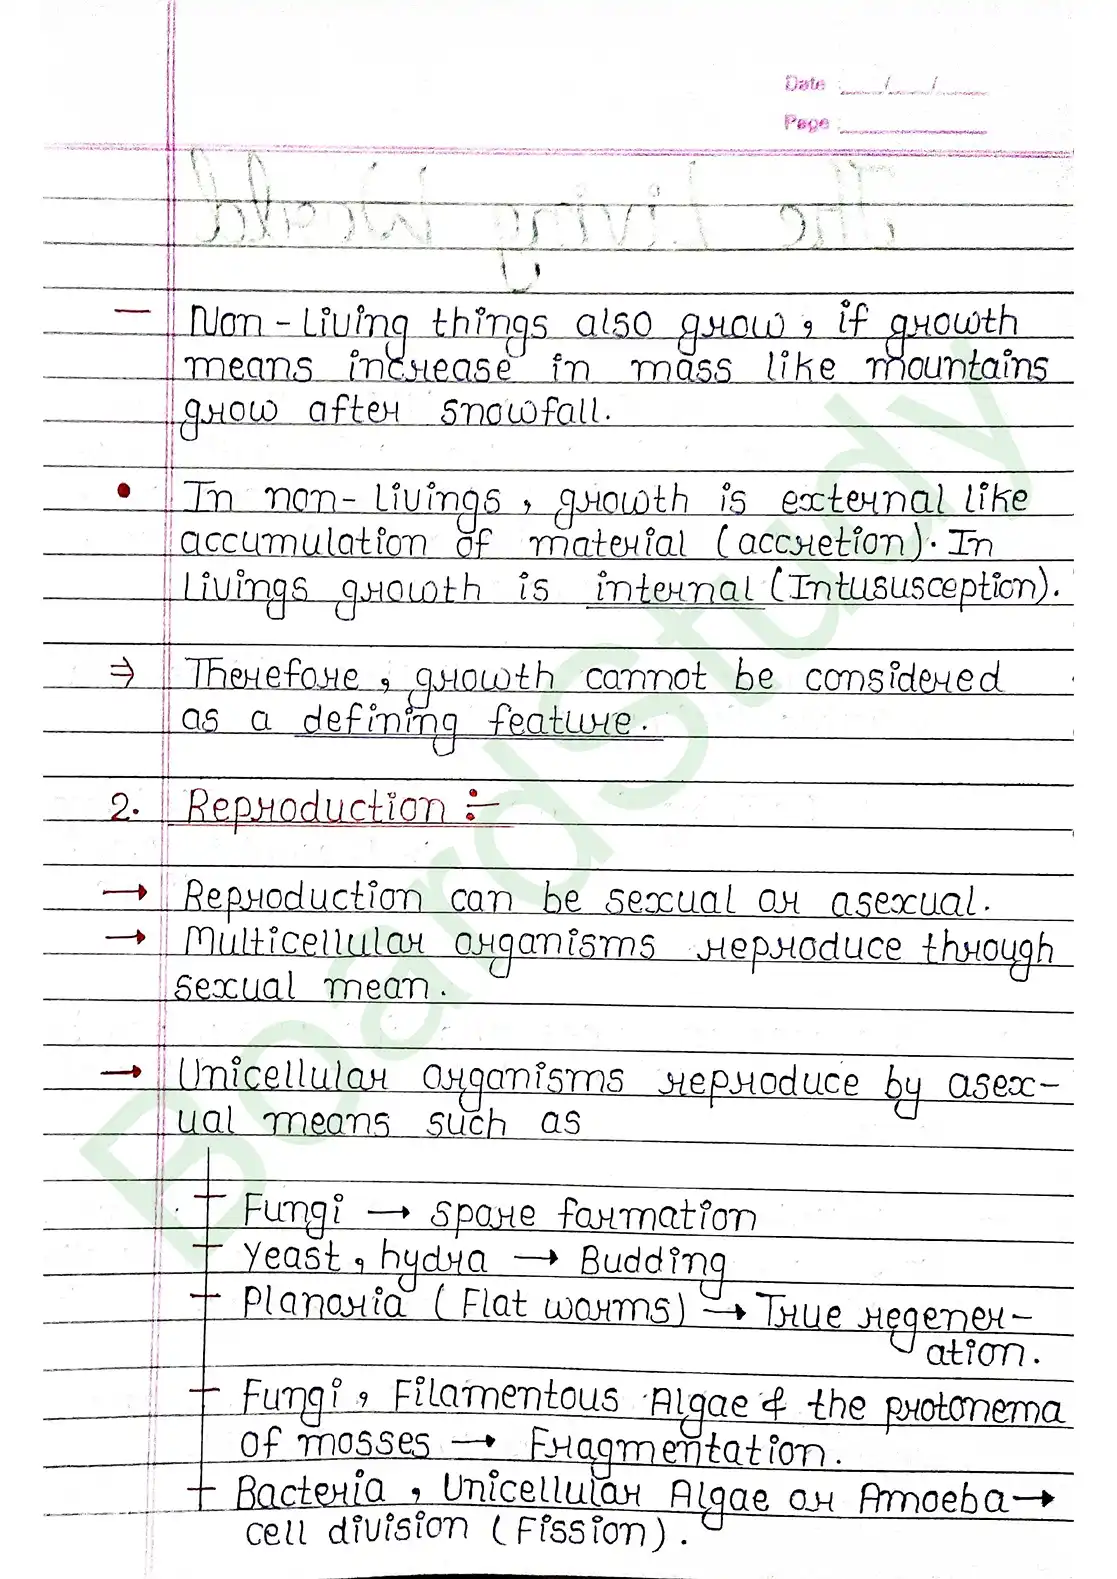 Date : __/__/__
Page
The Living World
— Non-Living things also grow, if growth
means increase in mass like mountains
grow after snowfall.
• In non-livings, growth is external like
accumulation of material (accretion). In
livings growth is internal (Intususception).
⇒ Therefore, growth cannot be considered
as a defining feature.
2. Reproduction :-
→ Reproduction can be sexual or asexual.
→ Multicellular organisms reproduce through
sexual mean.
→ Unicellular organisms reproduce by asex-
ual means such as
Fungi → spore formation
Yeast, hydra → Budding
Planaria (Flat worms) → True regener-
ation.
Fungi, Filamentous Algae & the protonema
of mosses → Fragmentation.
Bacteria, Unicellular Algae or Amoeba →
cell division (Fission).
BoardStudy